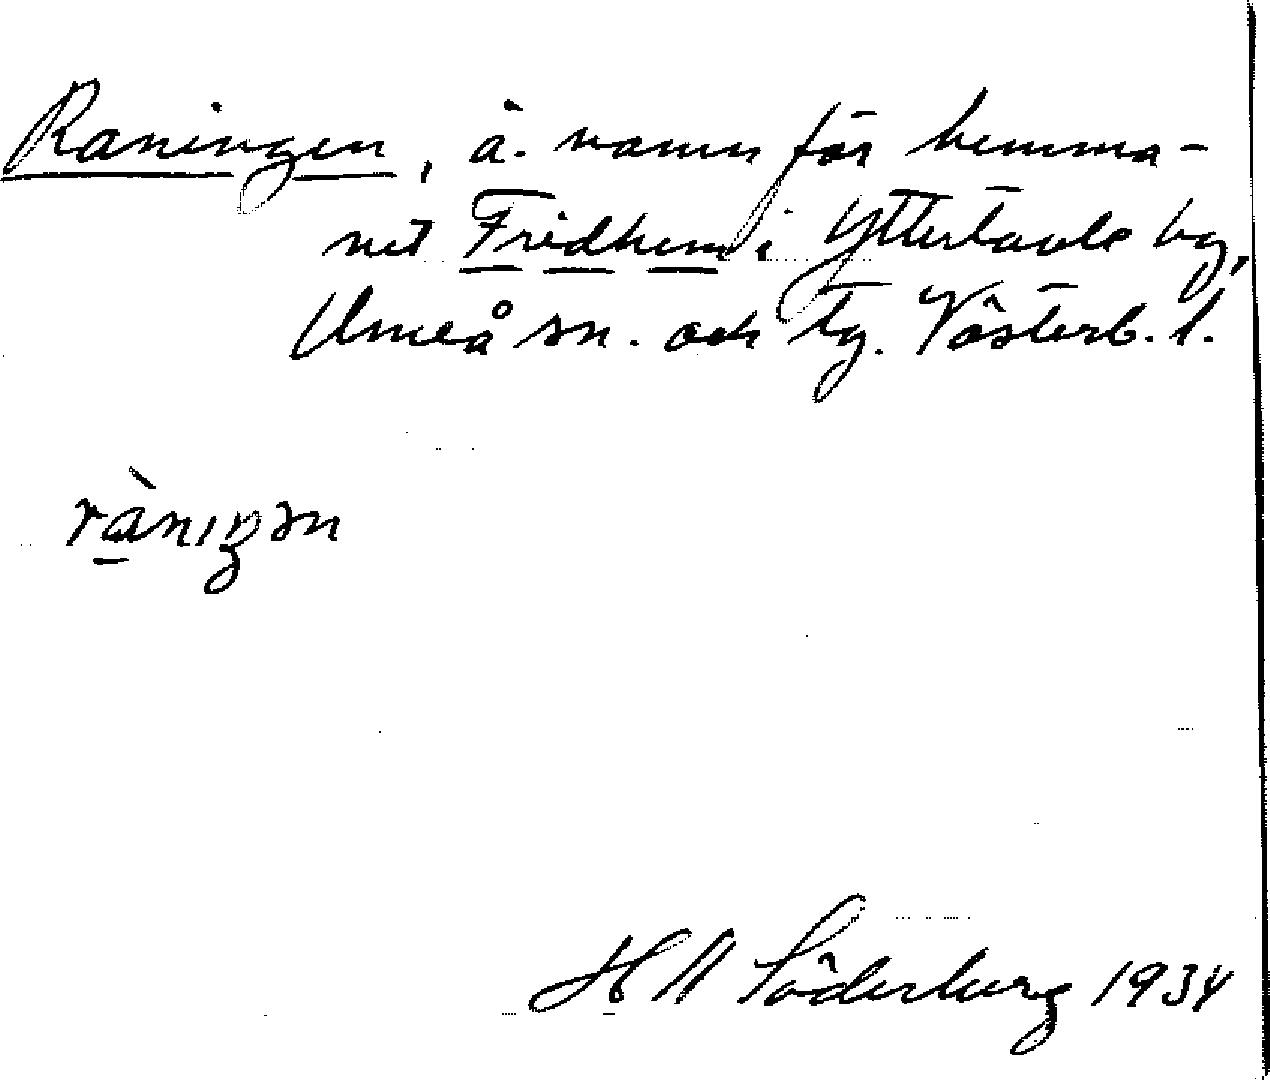 Raningen, ä. namn för hemma-
net Fridhem i Yttertavle by,
Umeå sn. och tg. Västerb. l.
rànıŋən
H A Söderberg 1934